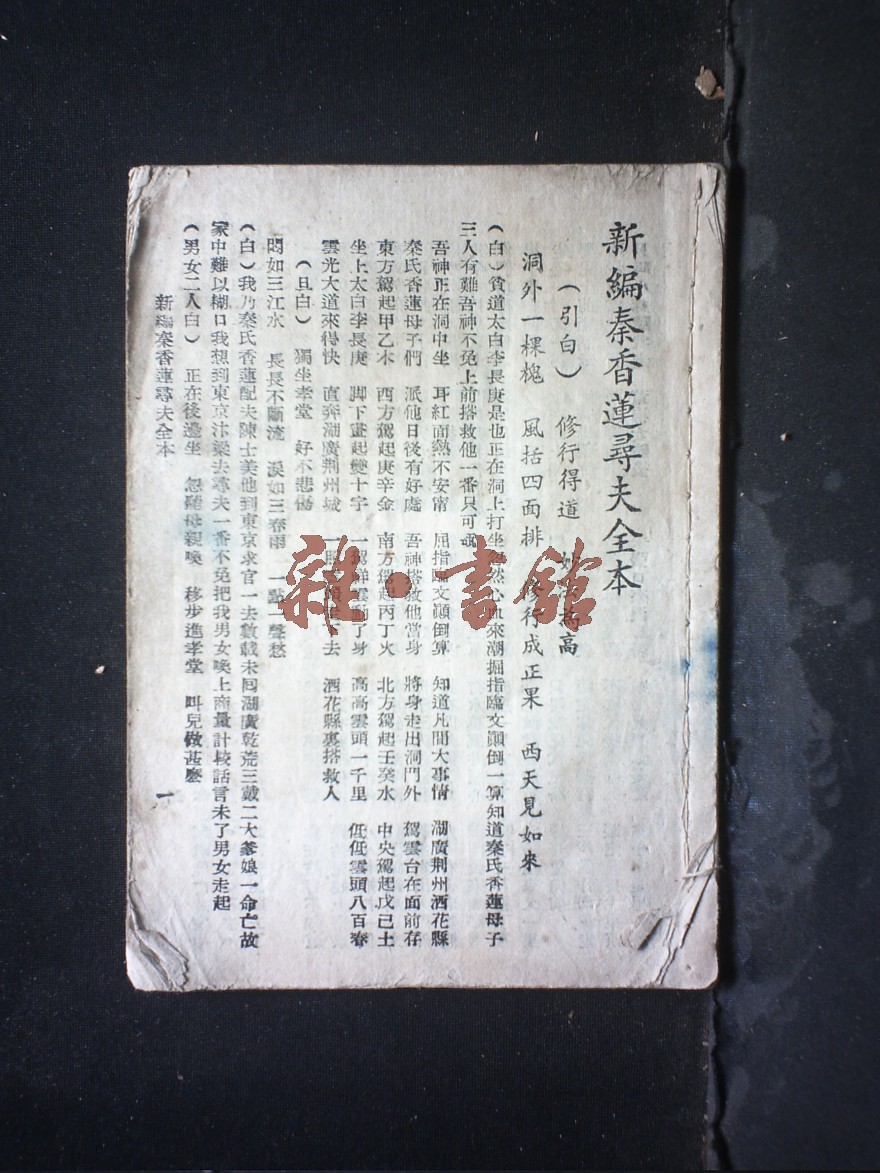 新編秦香蓮尋夫全本
(引白) 修行得道 為高
洞外一棵槐 風括四面排 修行成正果 西天見如來
(白)貧道太白李長庚是也正在洞上打坐忽然心血來潮掘指臨文顛倒一算知道秦氏香蓮母子
三人有難吾神不免上前搭救他一番只可
吾神正在洞中坐 耳紅面熱不安甯 屈指臨文顛倒算 知道凡間大事情 湖廣荆州酒花縣
秦氏香蓮母子們 派他日後有好處 吾神搭救他當身 將身走出洞門外 駕雲台在面前存
東方駕起甲乙木 西方駕起庚辛金 南方駕起丙丁火 北方駕起壬癸水 中央駕起戊己土
坐上太白李長庚 脚下畫起雙十字 一駕祥雲動了身 高高雲頭一千里 低低雲頭八百春
雲光大道來得快 直奔湖廣荆州城 一 去 酒花縣裏搭救人
(旦白) 獨坐孝堂 好不悲傷
悶如三江水 長長不斷流 淚如三春雨 一點一聲愁
(白)我乃秦氏香蓮配夫陳士美他到東京求官一去數載未囘湖廣乾荒三戴二大爹娘一命亡故
家中難以糊口我想到東京汴梁去尋夫一番不免把我男女喚上商量計較話言未了男女走起
(男女二人白) 正在後邊坐 忽聽母親喚 移步進孝堂 叫兒做甚麽
新編秦香蓮尋夫全本
一
雜·書館